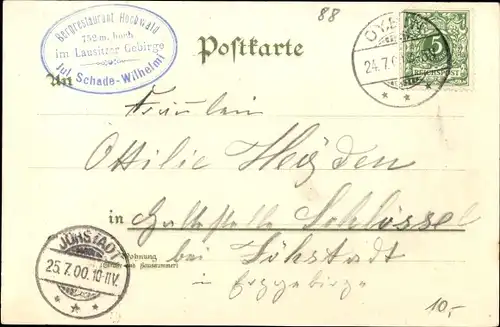 Bergrestaurant Hochwald
752 m. hoch
im Lausitzer Gebirge
Jul. Schade-Wilhelmi
88
Postkarte
OYBIN
24.7.0
5
REICHSPOST
An
Fräulein
Ottilie
in Haltestelle Schlössel
Wohnung
(Straße und Hausnummer)
bei Jöhstadt
in Erzgebirge
JÖHSTADT
25.7.00.10-11V.
10,-